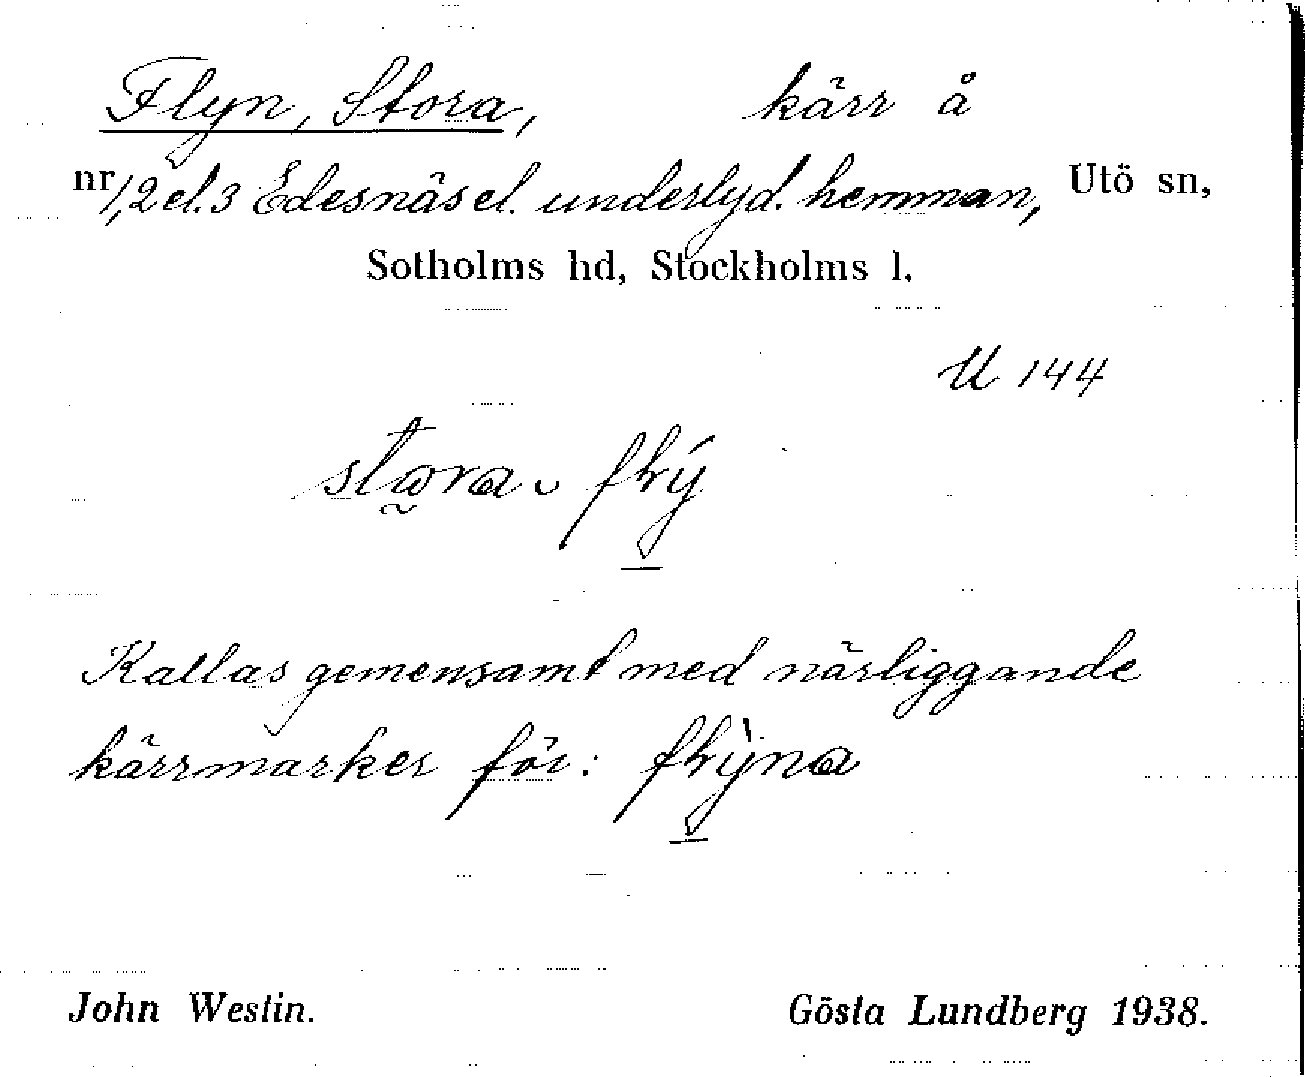 Flyn, Stora, kärr å
nr 1, 2 el. 3 Edesnäs el. underlyd. hemman, Utö sn,
Sotholms hd, Stockholms l.
U 144
stora
Kallas gemensamt med närliggande
kärrmarker för:
John Westin. Gösta Lundberg 1938.